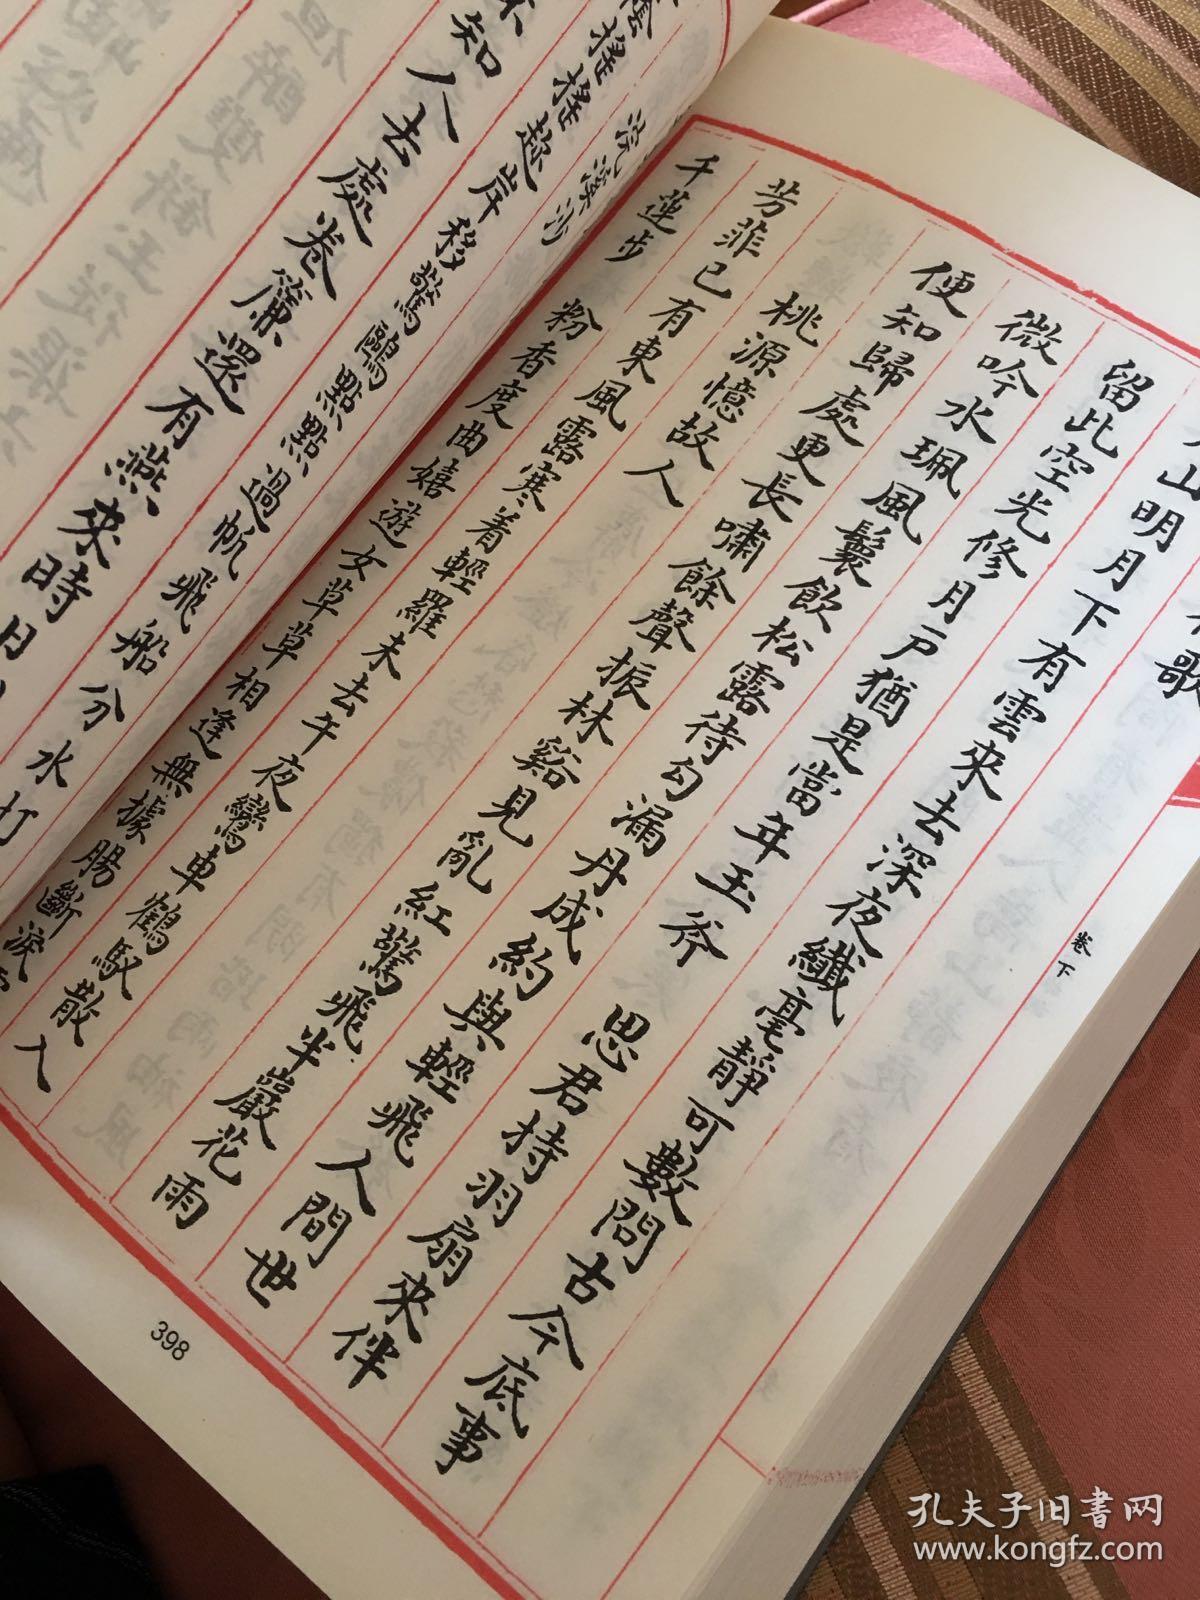 歌
山明月下有雲來去深夜纖毫靜可數問古今底事
留此空光修月戶猶是當年玉斧 思君持羽扇來伴
微吟水珮風鬟飲松露待勾漏丹成約與輕飛人間世
便知歸處更長嘯餘聲振林谿見亂紅驚飛半巖花雨
桃源憶故人
芳菲已有東風露寒着輕羅未去午夜鸞車鶴馭散入
千蓮步 粉香度曲嬉遊女草草相逢無據腸斷淚
浣溪沙
陰搖搖趁岸移驚鷗點點過帆飛船分水打
知人去處卷簾還有燕來時日
卷下
398
孔夫子旧書网
www.kongfz.com